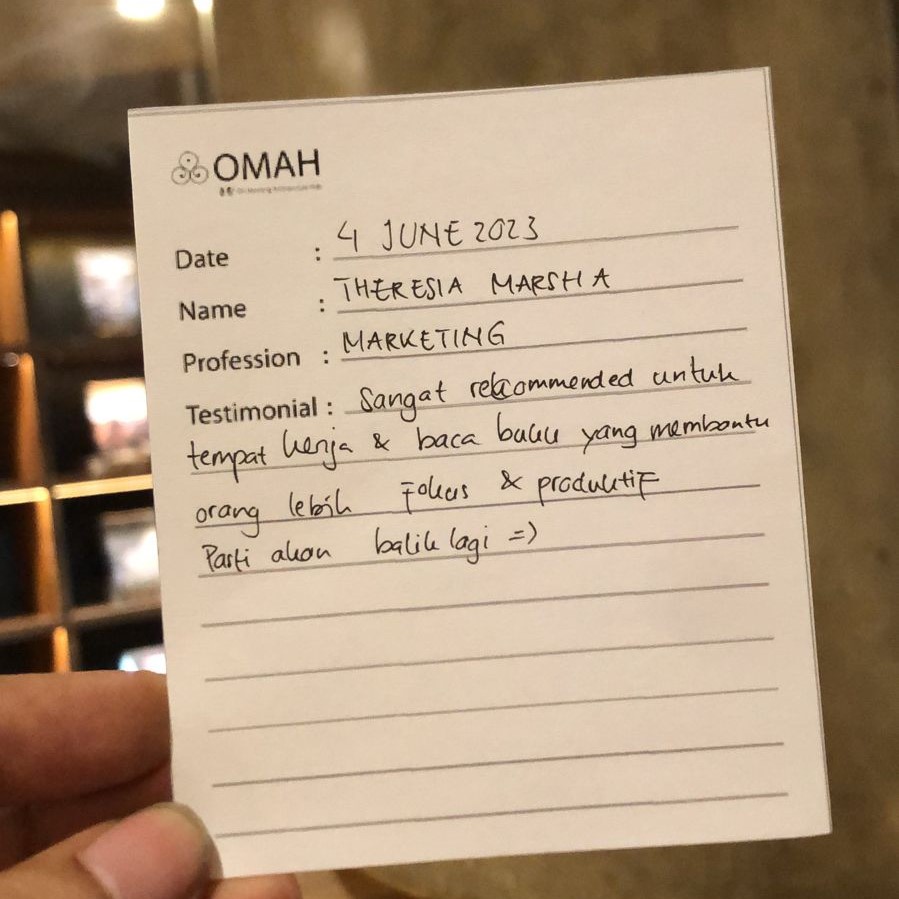 OMAH
Date : 4 JUNE 2023
Name : THERESIA MARSHA
Profession : MARKETING
Testimonial : Sangat recommended untuk
tempat kerja & baca buku yang membantu
orang lebih Fokus & produktif
Pasti akan balik lagi =)